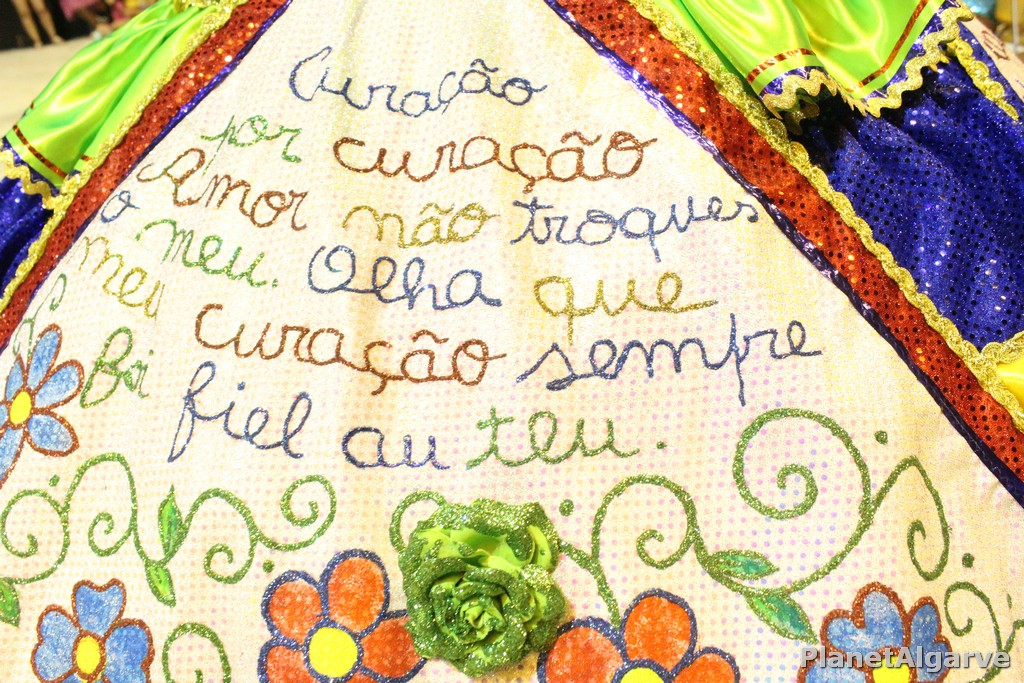 Curação
por curação
Amor não troques
o meu. Olha que
meu curação sempre
foi fiel au teu.
PlanetAlgarve